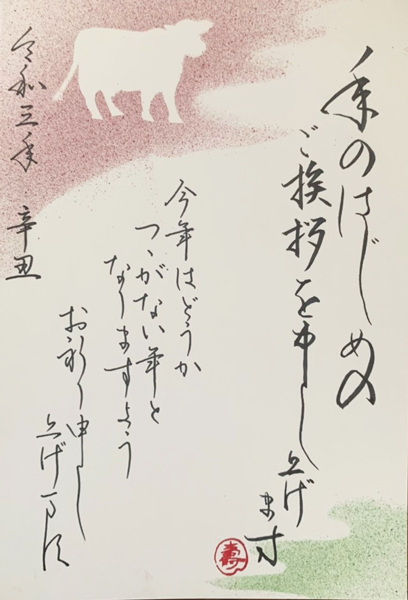 年のはじめの
ご挨拶を申し上げ
ます
今年はどうか
つゝがない年と
なりますよう
お祈り申し
上げます
令和三年 辛丑
壽